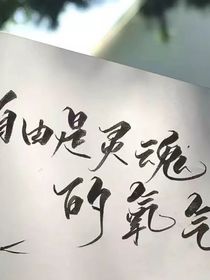 自由是灵魂
的氧气